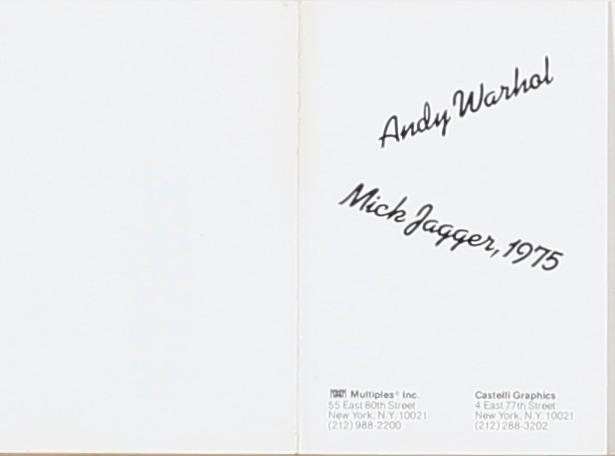 Andy Warhol
Mick Jagger, 1975
Multiples® Inc.
55 East 80th Street
New York, N.Y. 10021
(212) 988-2200
Castelli Graphics
4 East 77th Street
New York, N.Y. 10021
(212) 288-3202